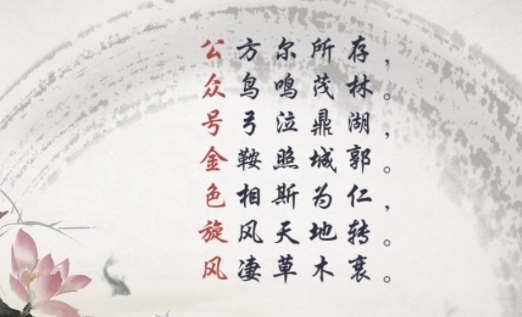 公方尔所存，
众鸟鸣茂林。
号弓泣鼎湖，
金鞍照城郭。
色相斯为仁，
旋风天地转。
风凄草木衰。